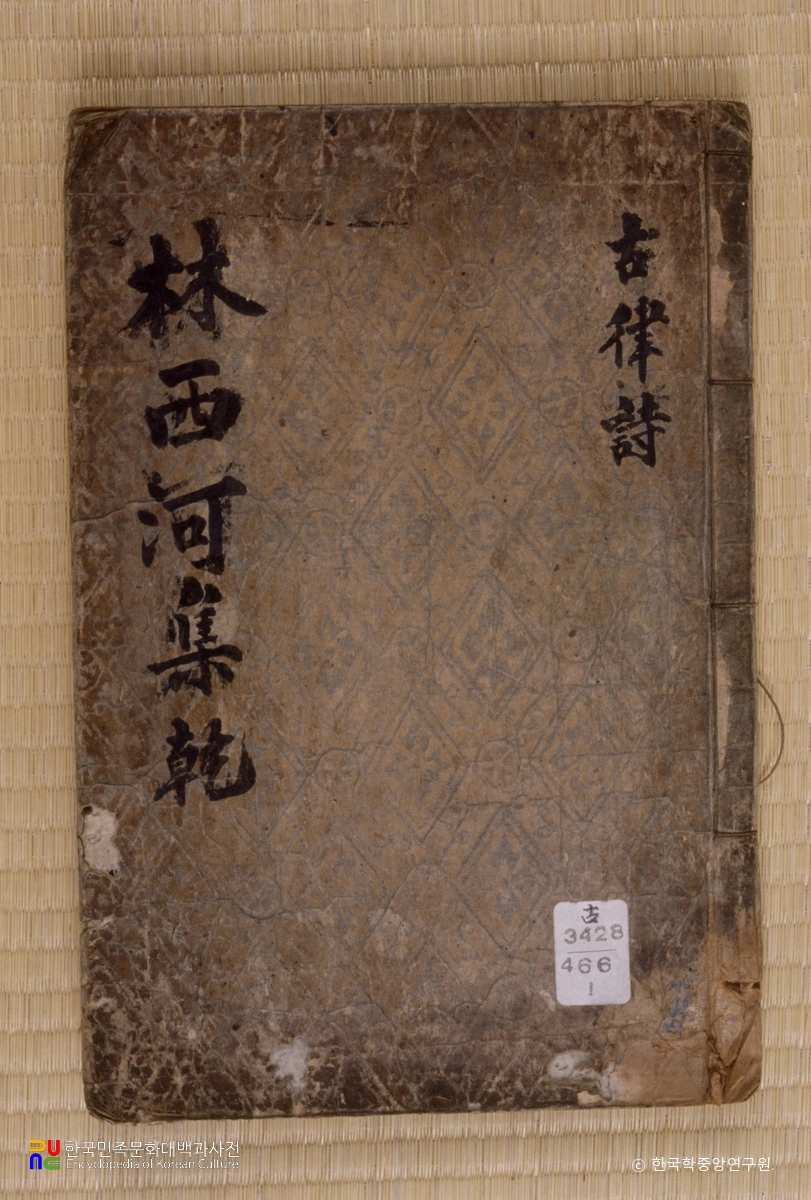 古律詩
林西河集乾
古
3428
466
1
한국민족문화대백과사전
Encyclopedia of Korean Culture
© 한국학중앙연구원.